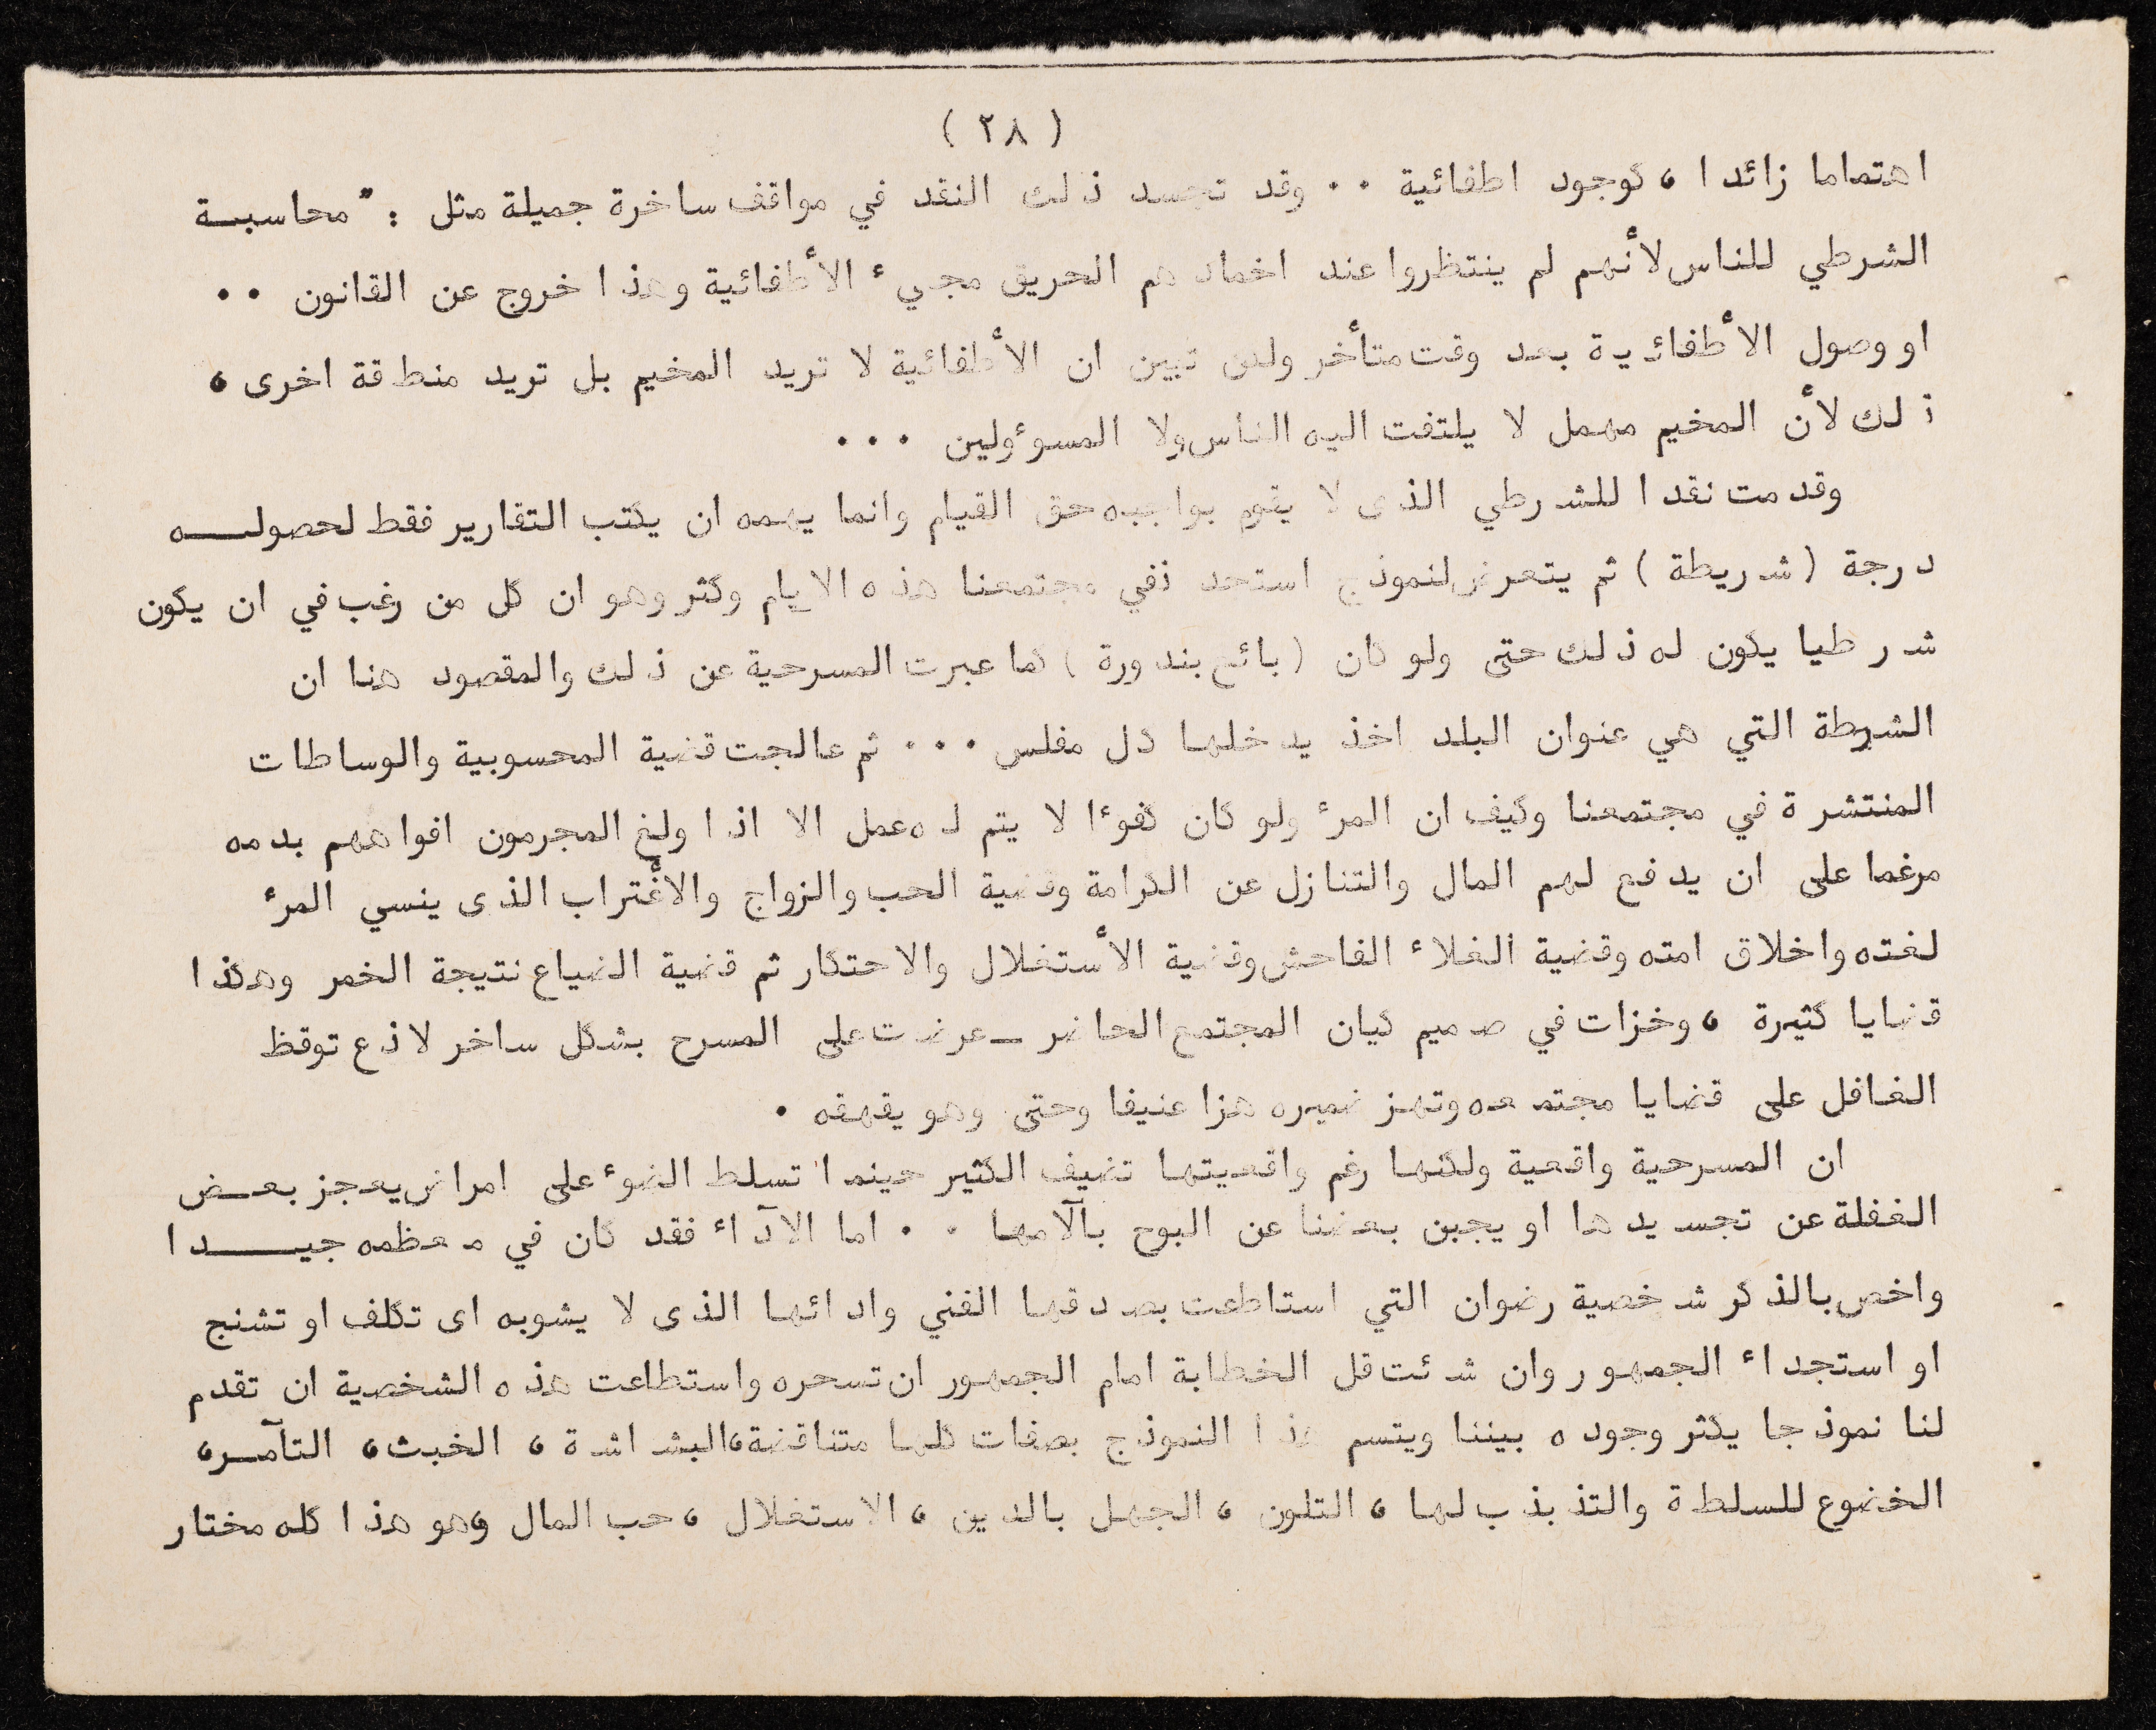 ( ٢٨ )
اهتماما زائدا ، كوجود اطفائية ٠٠ وقد تجسد ذلك النقد في مواقف ساخرة جميلة مثل : " محاسبـــة
الشرطي للناس لأنهم لم ينتظروا عند اخمادهم الحريق مجيء الأطفائية وهذا خروج عن القانون ٠٠
او وصول الأطفائية بعد وقت متأخر ولدى تبين ان الأطفائية لا تريد المخيم بل تريد منطقة اخرى ،
ذلك لأن المخيم مهمل لا يلتفت اليه الناس ولا المسوءولين ٠٠٠
وقدمت نقدا للشرطي الذى لا يقوم بواجبه حق القيام وانما يهمه ان يكتب التقارير فقط لحصولـــه
درجة ( شريطة ) ثم يتعرض لنموذج استحد ثفي مجتمعنا هذه الايام وكثر وهو ان كل من رغب في ان يكون
شرطيا يكون له ذلك حتى ولو كان ( بائع بندورة ) كما عبرت المسرحية عن ذلك والمقصود هنا ان
الشرطة التي هي عنوان البلد اخذ يدخلها كل مفلس ٠٠٠ ثم عالجت قضية المحسوبية والوساطات
المنتشرة في مجتمعنا وكيف ان المرء ولو كان كفوءا لا يتم له عمل الا اذا ولغ المجرمون افواههم بدمه
مرغما على ان يدفع لهم المال والتنازل عن الكرامة وقضية الحب والزواج والأغتراب الذى ينسي المرء
لغته واخلاق امته وقضية الغلاء الفاحش وقضية الأستغلال والاحتكار ثم قضية الضياع نتيجة الخمر وهكذا
قضايا كثيرة ، وخزات في صميم كيان المجتمع الحاضر ــ عرضت على المسرح بشكل ساخر لاذع توقظ
الغافل على قضايا مجتمعه وتهز ضميره هزا عنيفا وحتى وهو يقهقه ٠
ان المسرحية واقعية ولكنها رغم واقعيتها تضيف الكثير حينما تسلط الضوء على امراض يعجز بعـــض
الغفلة عن تجسيدها او يجبن بعضنا عن البوح بآلامها ٠٠ اما الآداء فقد كان في معظمه جيـــــدا
واخص بالذكر شخصية رضوان التي استاطعت بصدقها الفني وادائها الذى لا يشوبه اى تكلف او تشنج
او استجداء الجمهور وان شئت قل الخطابة امام الجمهور ان تسحره واستطاعت هذه الشخصية ان تقدم
لنا نموذجا يكثر وجوده بيننا ويتسم هذا النموذج بصفات كلها متناقضة ، البشاشة ، الخبث ، التآمــر ،
الخضوع للسلطة والتذبذب لها ، التلون ، الجهل بالدين ، الاستغلال ، حب المال وهو هذا كله مختار